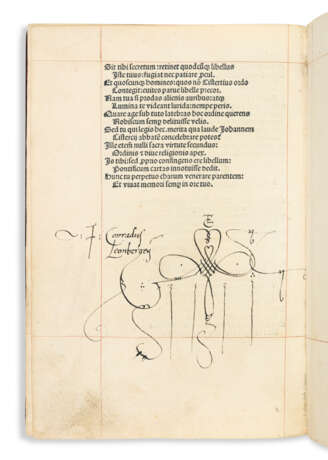 Sit tibi secretum: retinet quodcũqȝ libellus
Iste tuus: fugiat nec patiare ꝓcul.
Et quoscunqȝ homines: quos nõ Cistertius ordo
Contegit: euites parue libelle precor.
Nam tua si prodas alienis auribus: atqȝ
Lumina te videant lurida: nempe perio.
Quare age sub tuto latebras hoc ordine querens
Nobiscum semꝑ delituisse velis.
Sed tu qui legis hec. merita qua laude Johannem
Cistercij abbatẽ concelebrare potes?
Ille etenĩ nulli sacra virtute secundus:
Ordinis et diue religionis apex.
Is tibi: sed ꝓprio contingeno ere libellum:
Pontificum cartas innotuisse dedit.
Hunc tu perpetuo charum venerare parentem:
Et viuat memori semꝑ in ore tuo.
Conradus
Leonbergeñ